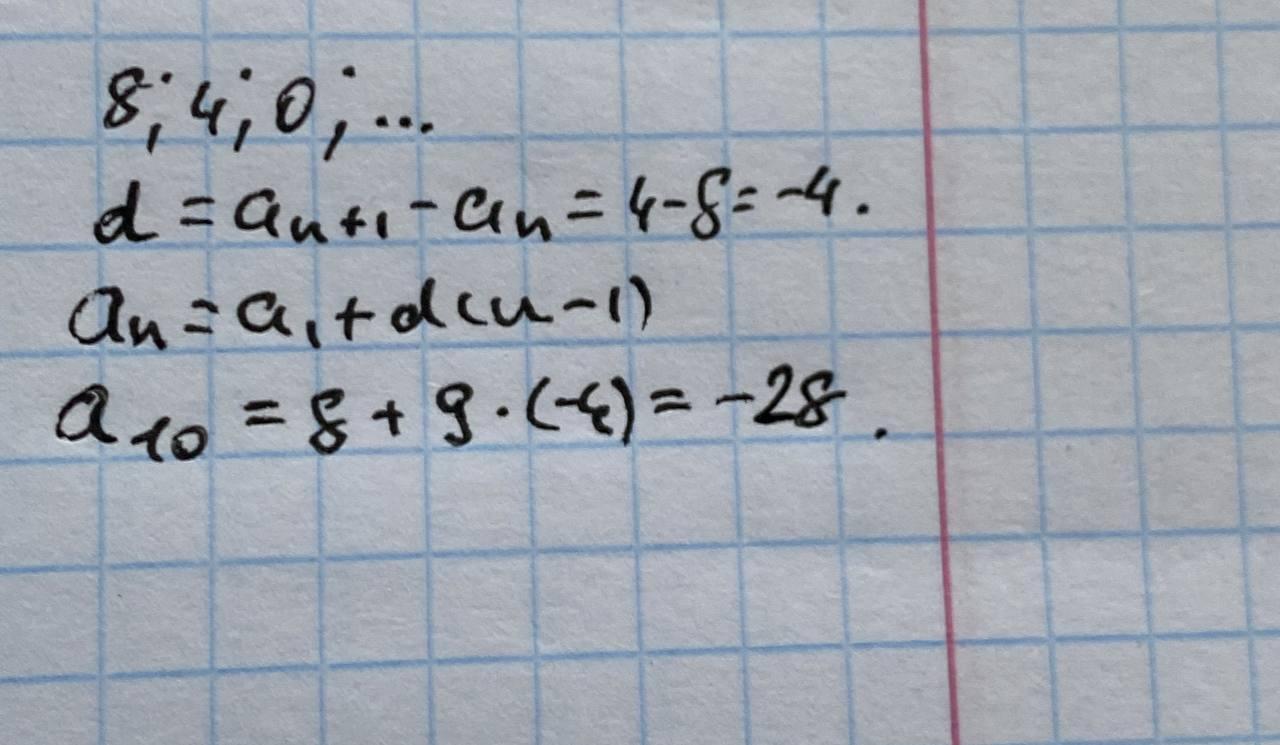 8; 4; 0; ...
d = aₙ₊₁ - aₙ = 4 - 8 = -4.
aₙ = a₁ + d(n - 1)
a₁₀ = 8 + 9 · (-4) = -28.